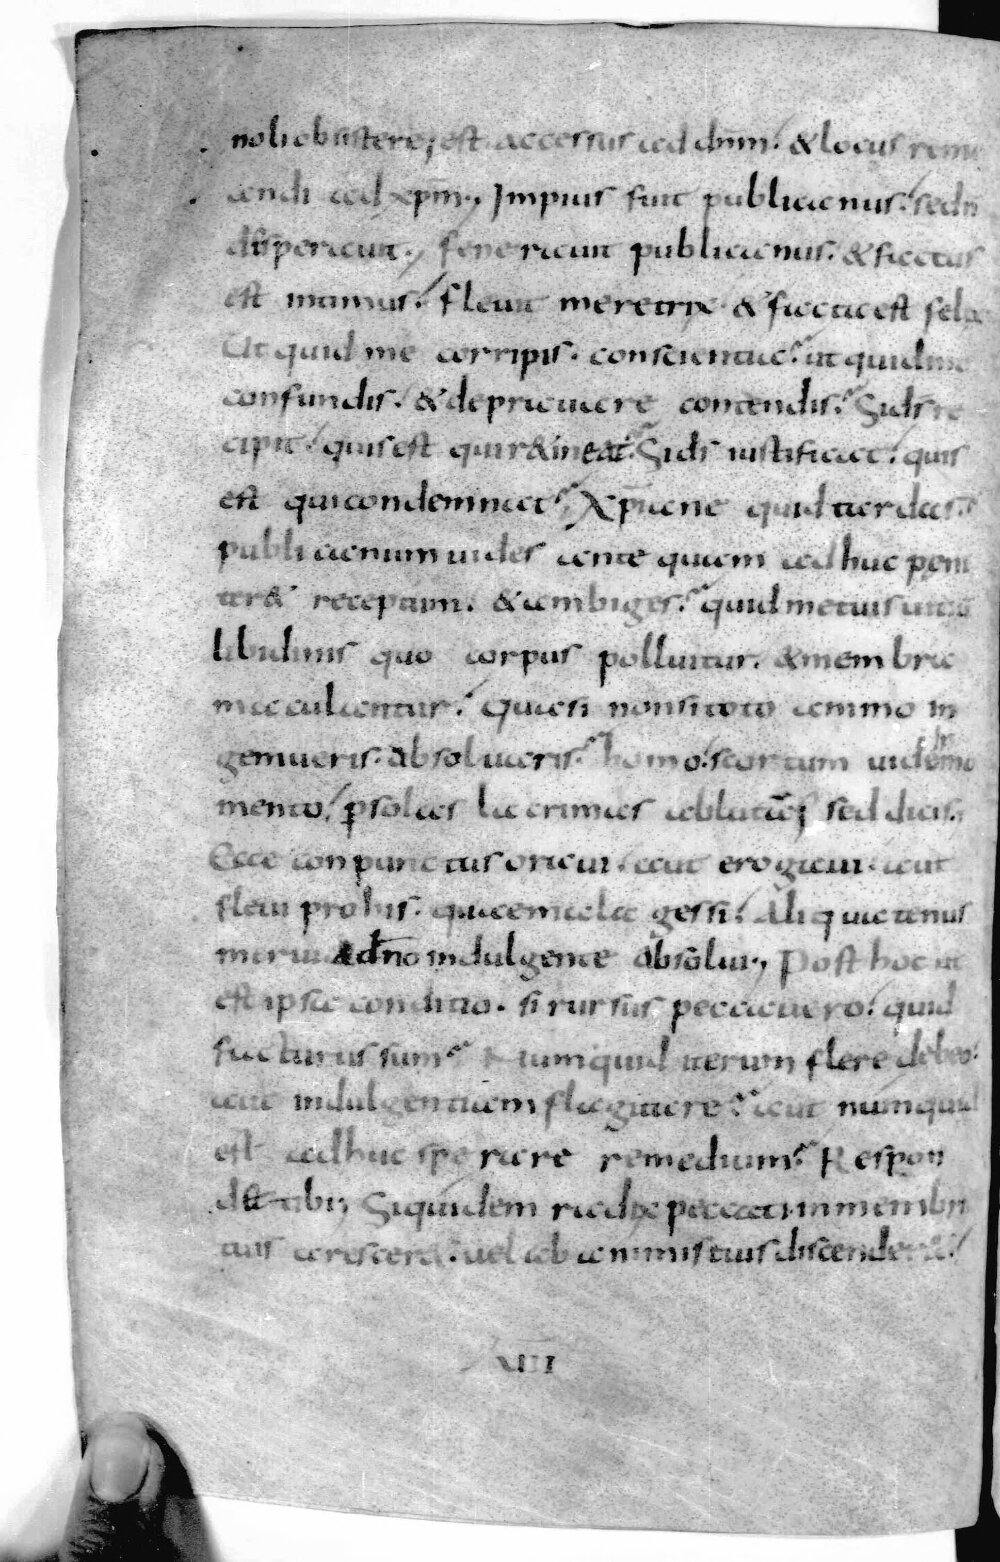 noli obsistere; est accessus ad dnm̄. & locus reme
andi ad xpm̄., Impius fuit publicanus. sed n̄
disperauit., feneriauit publicanus. & factus
est munus. fleuit meretrix & facta est
Ut quid me corripis. conscientiae. ut quid me
confundis. & depriauare contendis. Si ds re
cipit. quis est qui r&ineat. Si ds iustificat. quis
est qui condemnat. Xp̄iane quid tardas.
publicanum uides ante quam ad huc peni
ter& receptum. & ambiges. quid metuis
libidinis quo corpus polluitur. & membra
maculantur. Quasi non si toto animo in
gemueris. absolueris. homo. scortum
mento. psolas lacrimas ablut sed dicis.
Ecce conpunctus oraui. aut erogaui. aut
fleui probis. quae mala gessi. Aliquatenus
merui a dn̄o indulgente absolui., Post hoc ut
est ipsa conditio. si rursus peccauero. quid
facturus sum. Numquid iterum flere debeo.
aut indulgentiam flagitare. aut numquid
est adhuc sperare remedium. Respon
d& tibi; Siquidem radix peccati in membri
tuis arescer&. uel ab animis tuis discender&.
XIII